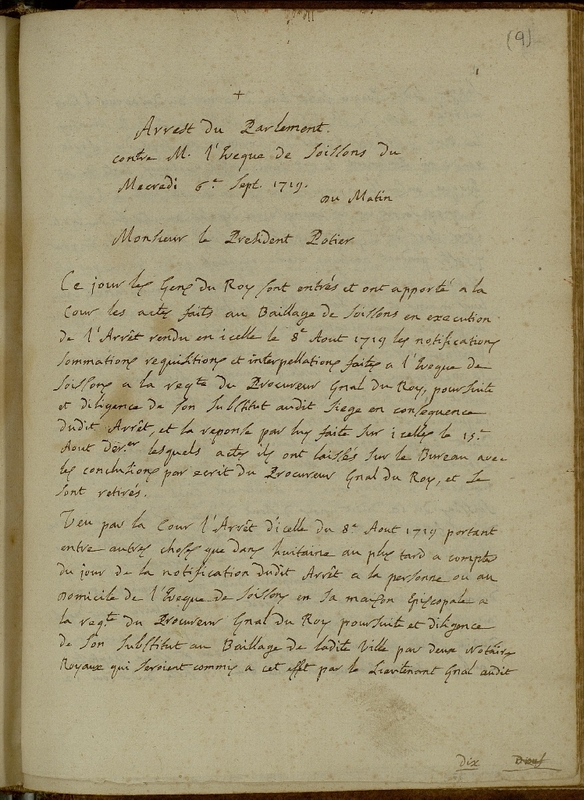 (9)
+
Arrest du Parlement.
contre M. l'Eveque de Soissons du
Mecredi 6e Sept. 1719.
du Matin
Monsieur le President Potier
Ce jour les Gens du Roy sont entrés et ont apporté a la
Cour les actes faits au Baillage de Soissons en execution
de l'Arrêt rendu en icelle le 8e Aout 1719 les notifications
sommations requisitions et interpellations faites a l'Eveque de
Soissons a la reqte du Procureur Gnal du Roy, poursuite
et diligence de son Substitut audit Siege en consequence
dudit Arrêt, et la reponse par luy faite sur icelles le 15e
Aout der.er lesquels actes ils ont laissés sur le Bureau avec
les conclusions par ecrit du Procureur Gnal du Roy, et se
sont retirés.
Veu par la Cour l'Arrêt d'icelle du 8e Aout 1719 portant
entre autres choses que dans huitaine au plus tard a compter
du jour de la notification dudit Arrêt a la personne ou au
domicile de l'Eveque de Soissons en sa maison Episcopale a
la reqte du Procureur Gnal du Roy poursuite et diligence
de son Substitut au Baillage de ladite Ville par deux Notaires
Royaux qui seroient commis a cet effet par le Lieutenant Gnal audit
dix